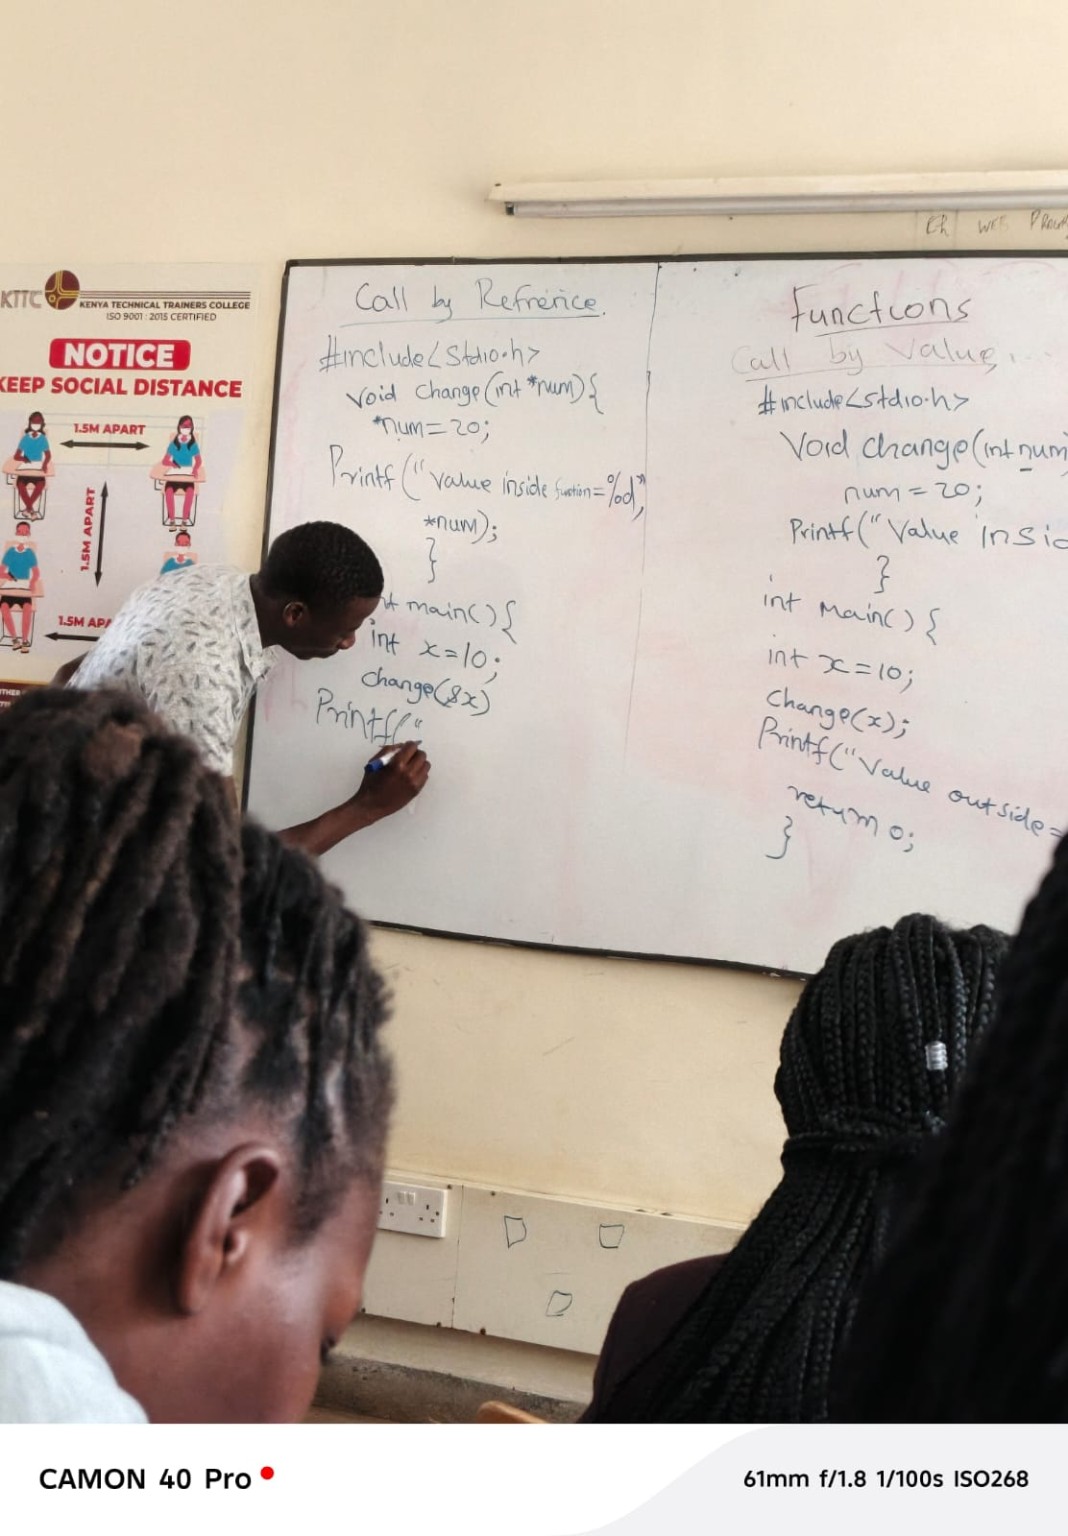 KTTC
KENYA TECHNICAL TRAINERS COLLEGE
ISO 9001 : 2015 CERTIFIED
NOTICE
KEEP SOCIAL DISTANCE
1.5M APART
1.5M APART
1.5M APA
Call by Refrence
#include<stdio.h>
void change(int *num){
*num=20;
Printf("value inside function=%d",
*num);
}
nt main(){
int x=10;
change(&x)
Printf("
Functions
Call by Value...
#include<stdio.h>
Void change(int num)
num=20;
Printf("Value insid
}
int main(){
int x=10;
change(x);
Printf("Value outside=
return 0;
}
CAMON 40 Pro
61mm f/1.8 1/100s ISO268